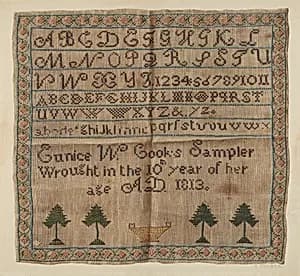 A B C D E F G H I K L
M N O P Q R P S T U
V W X Y Z 1 2 3 4 5 6 7 8 9 10 11
A B C D E F G H I J K L M N O P Q R S T
U V W X Y Z & y z.
a b c d e f g h i J k l m n o p q r s t u v w x
Eunice W Cooks Sampler
Wrought in the 10th year of her
age A.D. 1813.